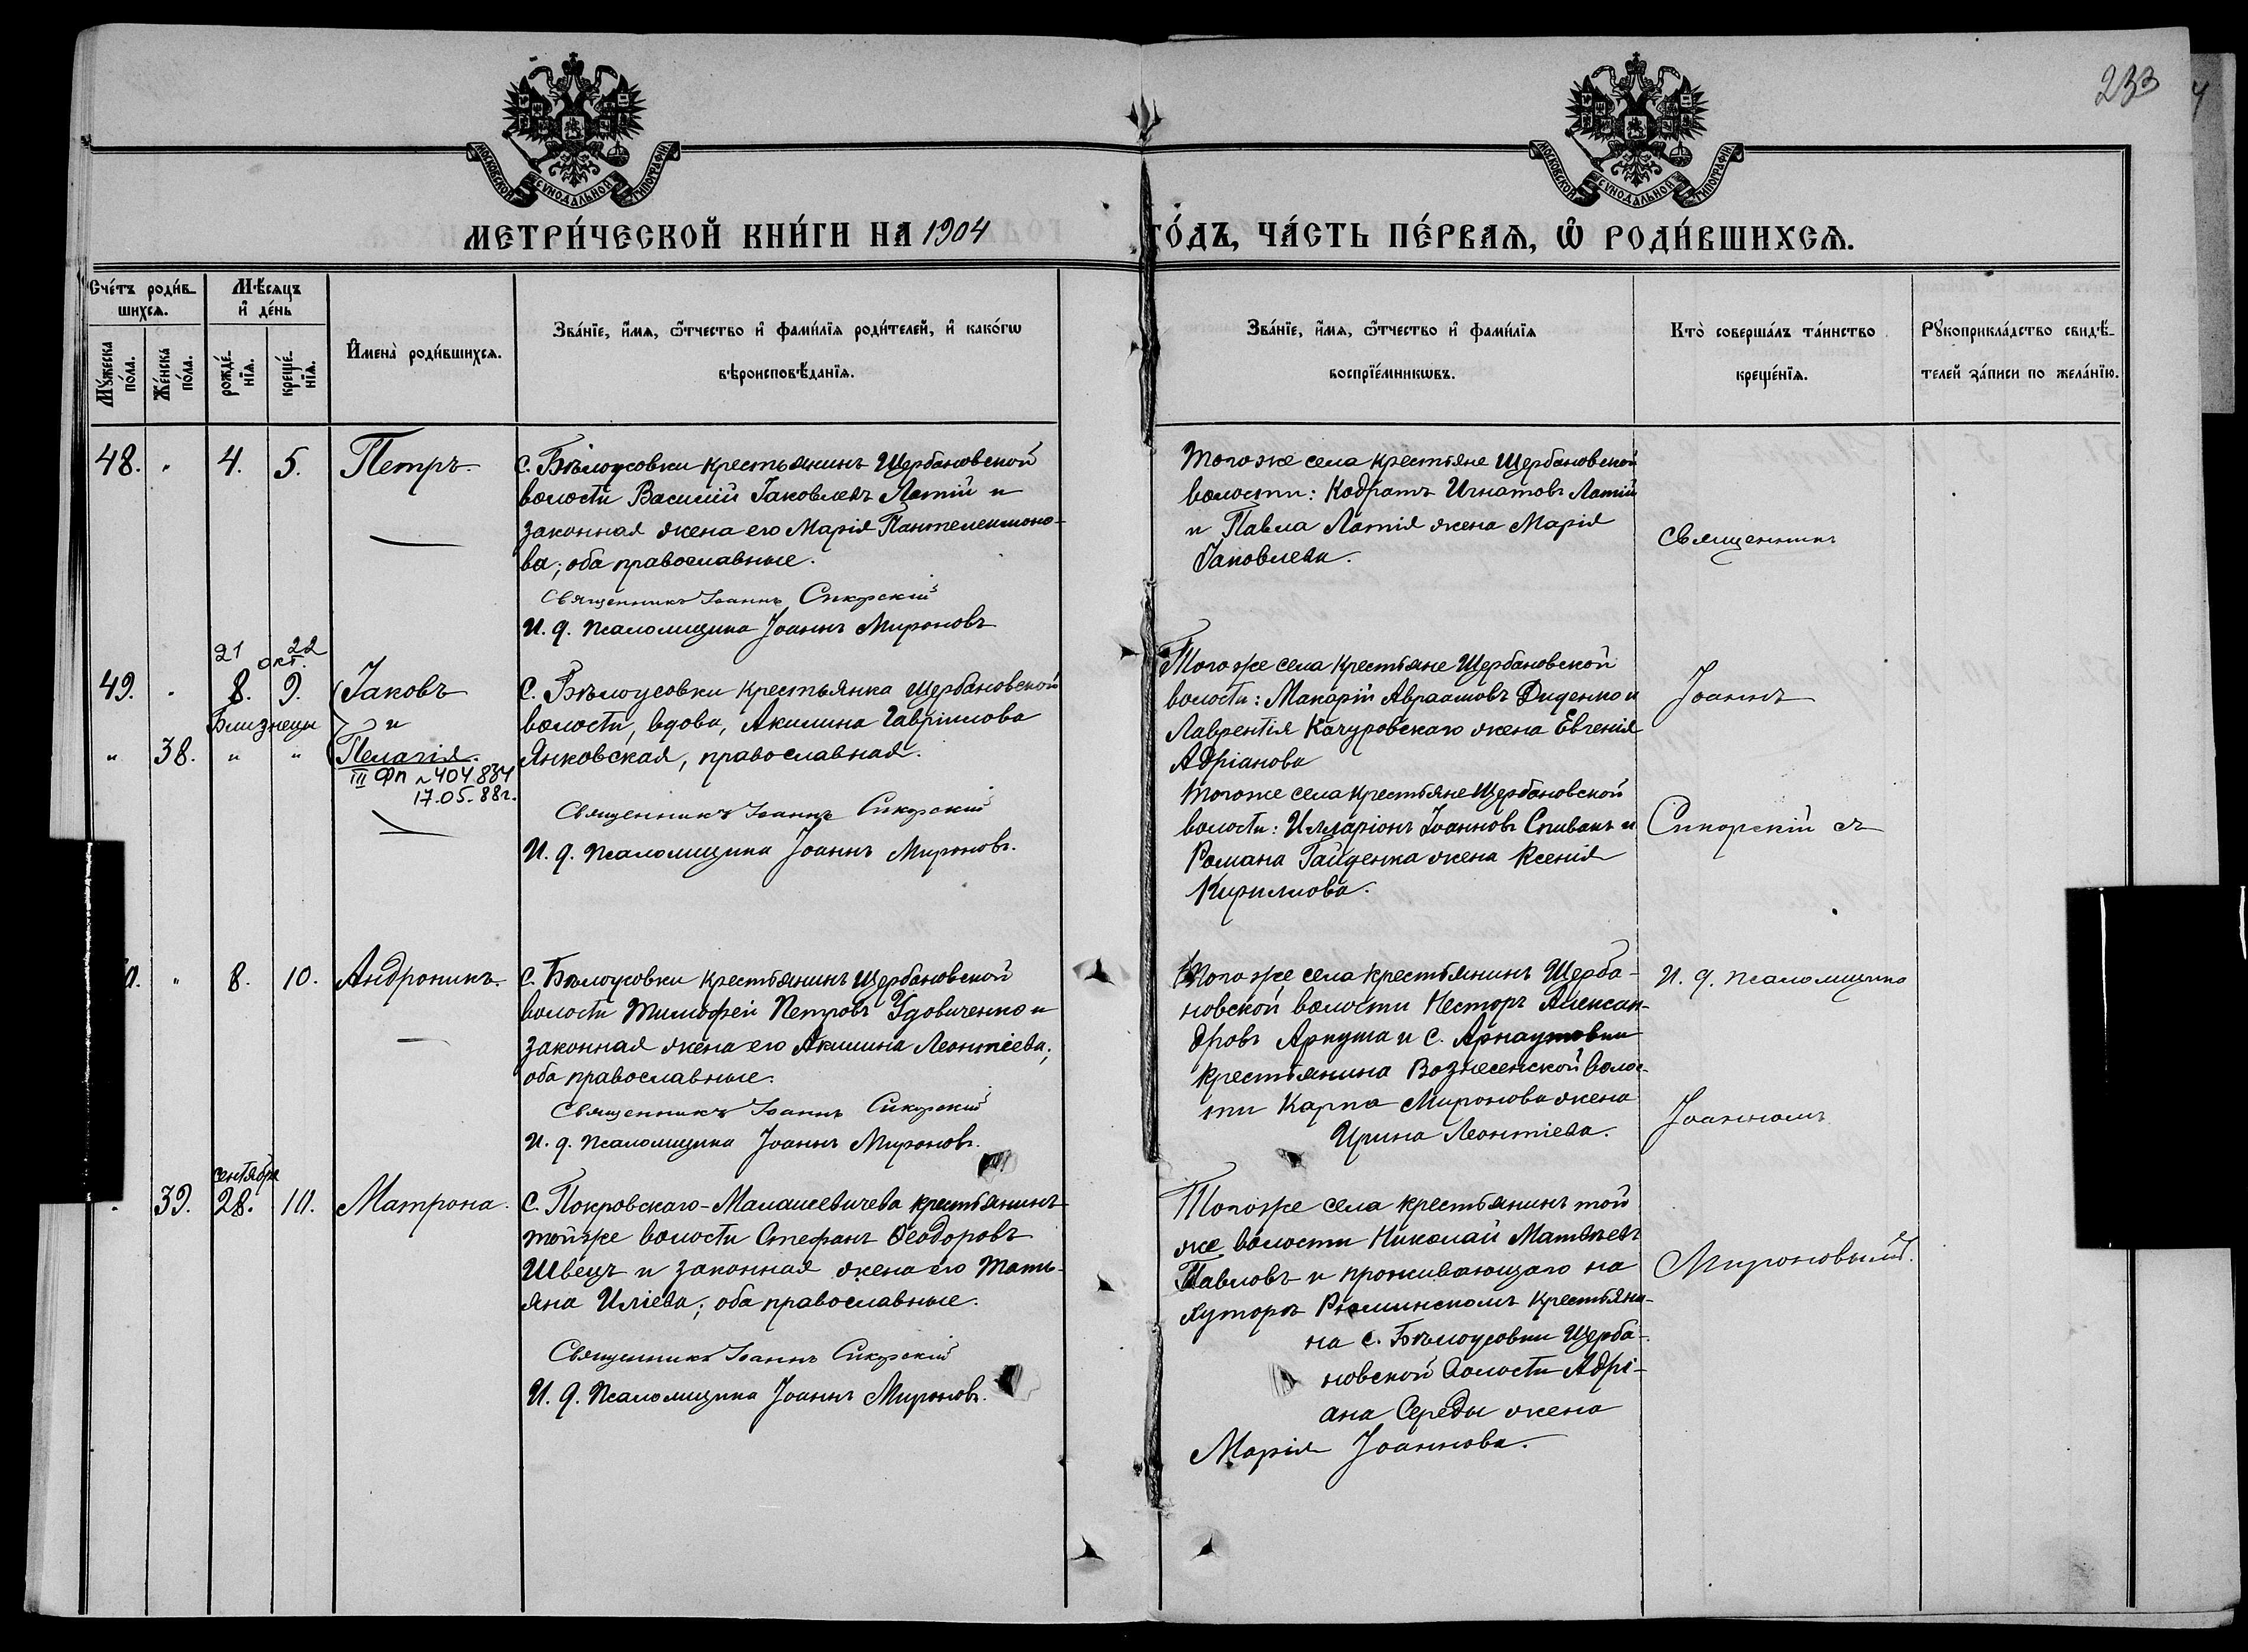 233
МОСКОВСКОЙ СУНОДАЛЬНОЙ ТИПОГРАФІИ
МОСКОВСКОЙ СУНОДАЛЬНОЙ ТИПОГРАФІИ
МЕТРИ́ЧЕСКОЙ КНИ́ГИ НА 1904
ГО́ДЪ, ЧА́СТЬ ПЕ́РВАѦ, Ѽ РОДИ́ВШИХСѦ.
Сче́тъ роди́в-
шихсѧ.
Мѣ́сѧцъ
и҆ де́нь
Мꙋ́жеска
по́ла.
Же́нска
по́ла.
рожде́-
нїѧ.
креще́-
нїѧ.
И҆мена̀ роди́вшихсѧ.
Зва́нїе, и҆́мѧ, ѻ҆́тчество и҆ фами́лїѧ роди́телей, и҆ како́гѡ
вѣроисповѣ́данїѧ.
Зва́нїе, и҆́мѧ, ѻ҆́тчество и҆ фами́лїѧ
воспрїе́мникѡвъ.
Кто̀ соверша́лъ та́инство
креще́нїѧ.
Рꙋкоприкла́дство свидѣ́-
телей за́писи по жела́нїю.
48. " 4. 5. Петръ
С. Бѣлоусовки крестьянинъ Щербановской
волости Василій Іаковлевъ Латій и
законная жена его Марія Пантелеимоно-
ва; оба православные.
Священникъ Іоаннъ Сикорскій
И. д. псаломщика Іоаннъ Мироновъ
Того же села крестьяне Щербановской
волости: Кодратъ Игнатовъ Латій
и Павла Латія жена Марія
Іаковлева.
Священникъ
21 22
окт.
49. " 8. 9. Іаковъ
Близнецы и
" 38. " " Пелагія.
III ФП № 404884
17.05.88г.
С. Бѣлоусовки крестьянка Щербановской
волости, вдова, Акилина Гавріилова
Янковская, православная.
Священникъ Іоаннъ Сикорскій
И. д. псаломщика Іоаннъ Мироновъ.
Того же села крестьяне Щербановской
волости: Макарій Авраамовъ Диденко и
Лаврентія Качуровскаго жена Евгенія
Адріанова
Того же села крестьяне Щербановской
волости: Илларіонъ Іоанновъ Спивакъ и
Романа Гайденка жена Ксенія
Кириллова.
Іоаннъ
Сикорскій съ
0. " 8. 10. Андроникъ.
С. Бѣлоусовки крестьянинъ Щербановской
волости Тимофей Петровъ Удовиченко и
законная жена его Акилина Леонтіева;
оба православные.
Священникъ Іоаннъ Сикорскій
И. д. псаломщика Іоаннъ Мироновъ.
Того же села крестьянинъ Щерба-
новской волости Несторъ Алексан-
дровъ Аркуша и с. Арнаутовки
крестьянина Вознесенской волос-
ти Карпа Миронова жена
Ирина Леонтіева.
И. д. псаломщика
Іоанномъ
сентября
" 39. 28. 10. Матрона.
С. Покровскаго-Малашевичева крестьянинъ
той же волости Стефанъ Ѳеодоровъ
Швецъ и законная жена его Тать-
яна Иліева; оба православные.
Священникъ Іоаннъ Сикорскій
И. д. псаломщика Іоаннъ Мироновъ.
Того же села крестьянинъ той
же волости Николай Матвѣевъ
Павловъ и проживающаго на
хуторѣ Рюминскомъ крестьяни-
на с. Бѣлоусовки Щерба-
новской волости Адрі-
ана Середы жена
Марія Іоаннова.
Мироновымъ.